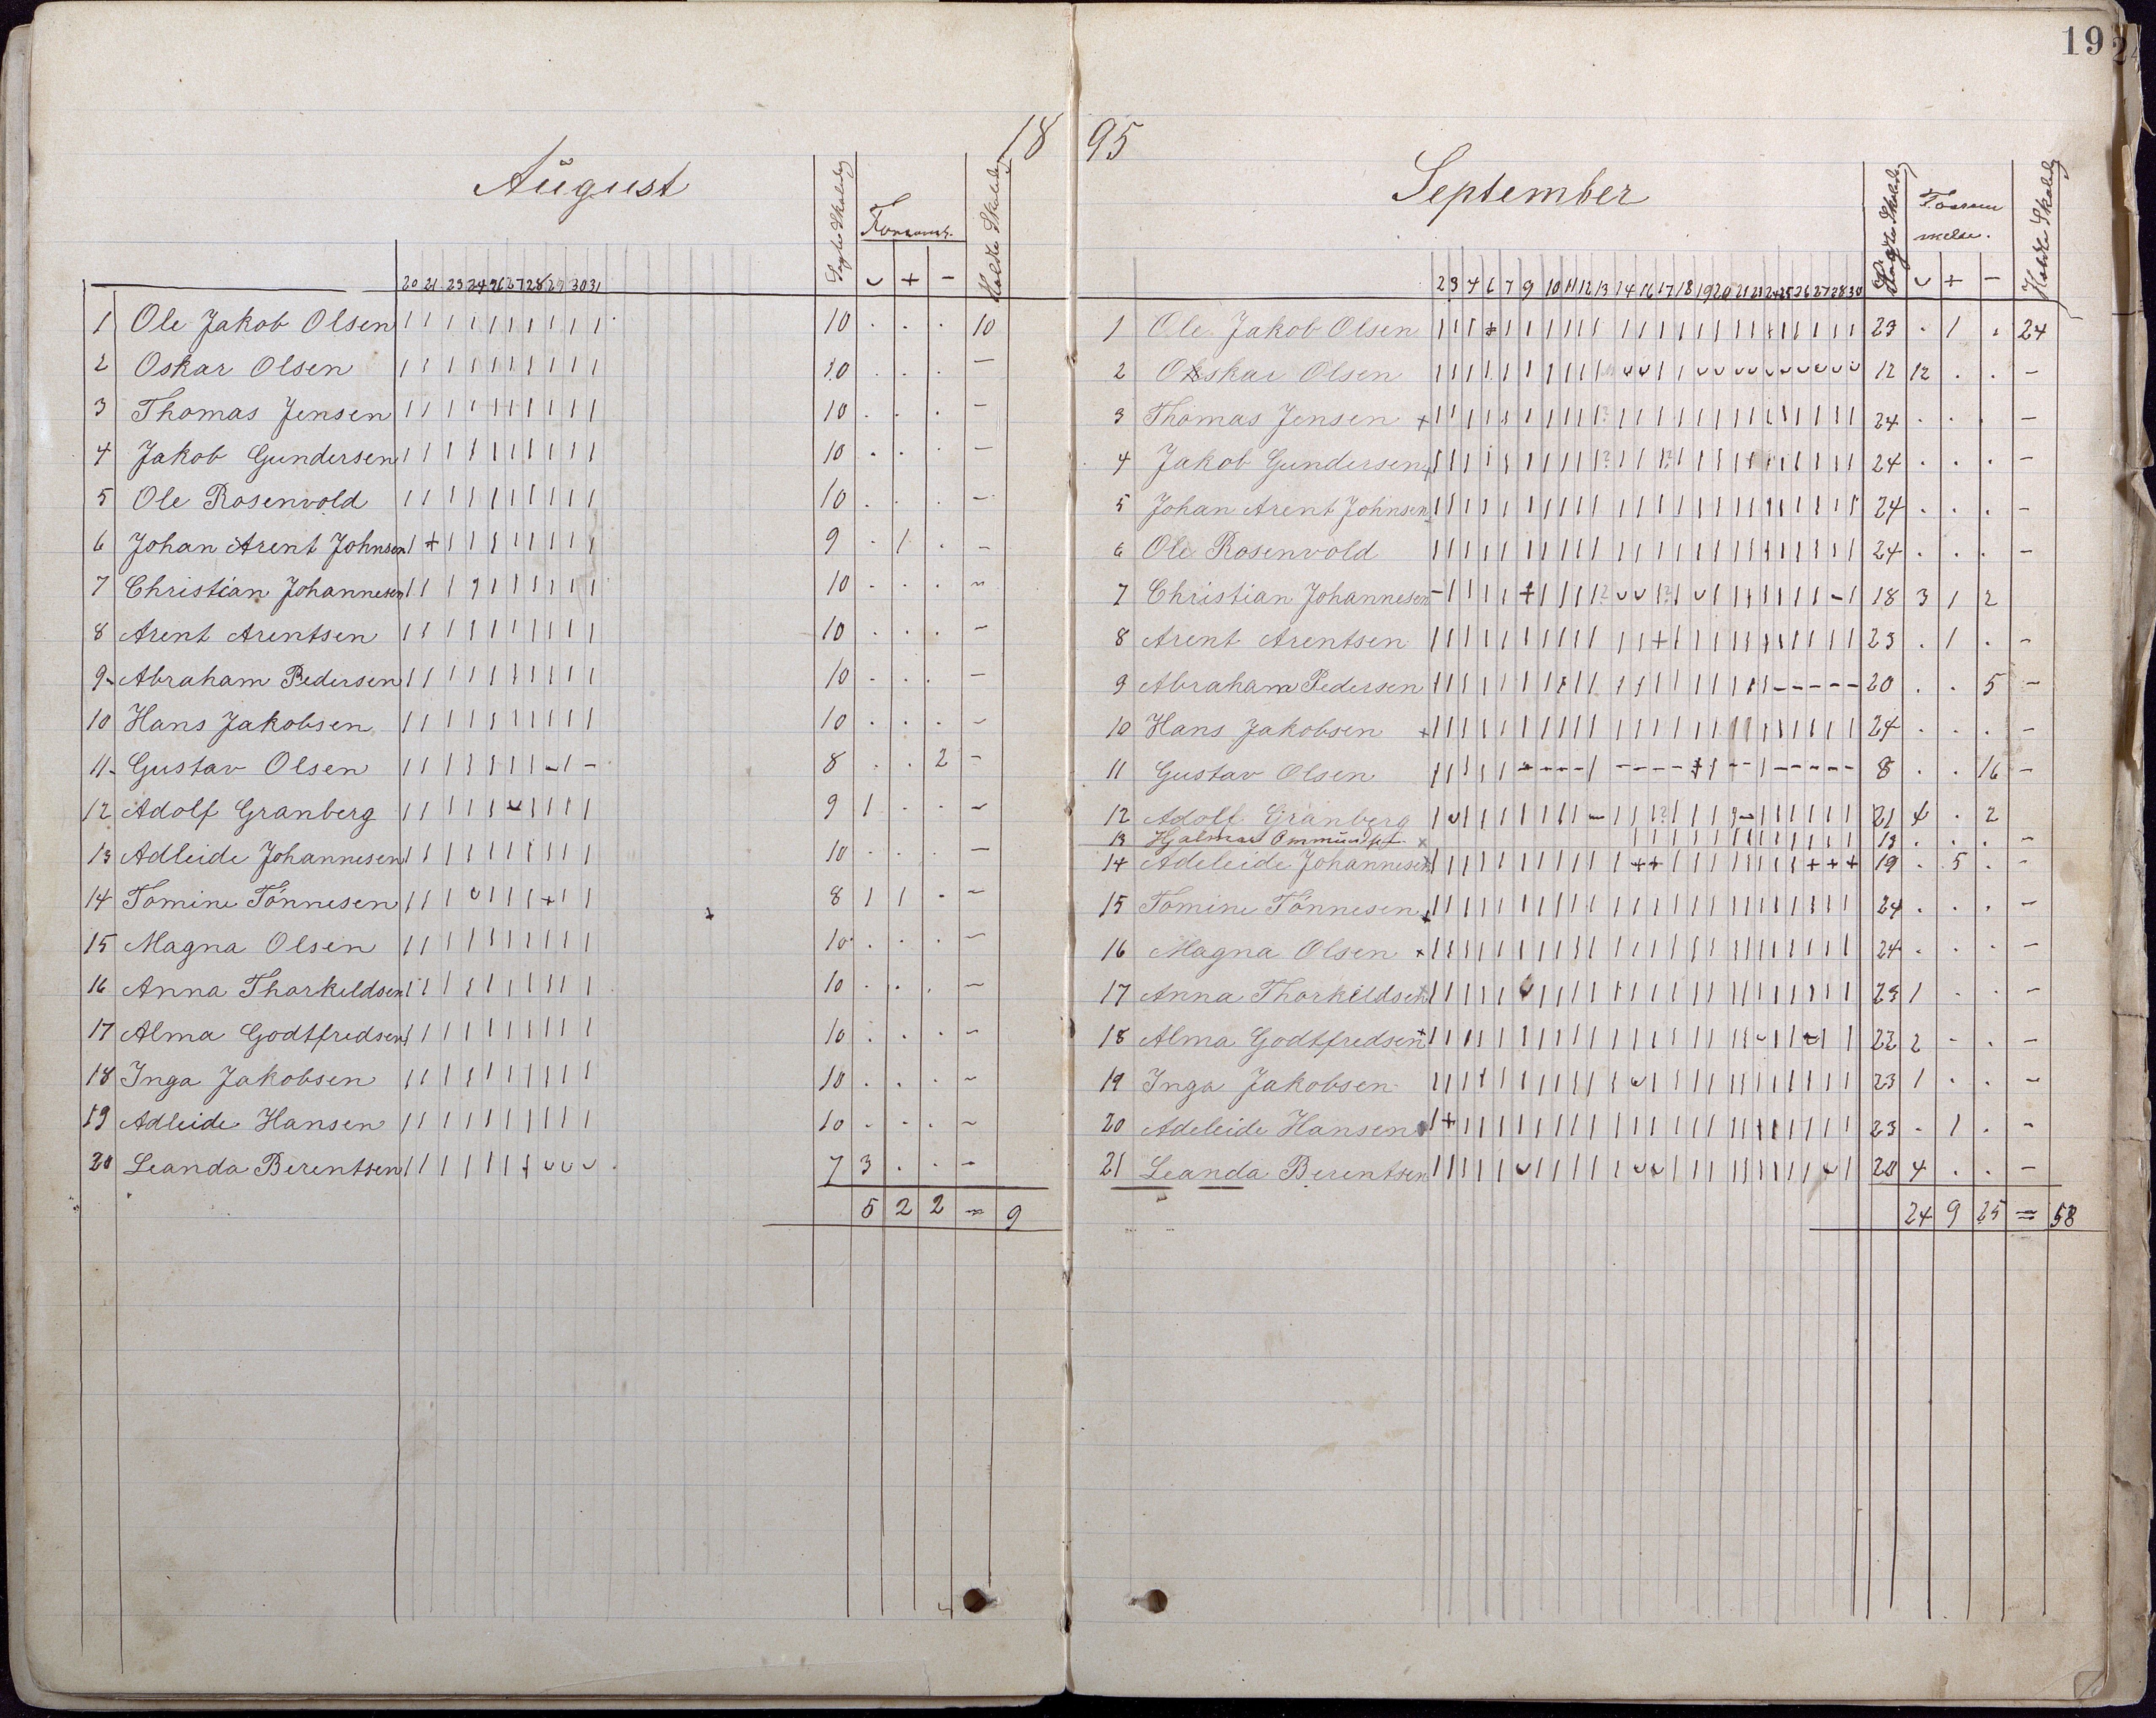 19
18 95
August
Søgte Skoledag
Forsømt.
Holdte Skoledag
⌣ + -
20 21 23 24 26 27 28 29 30 31
1 Ole Jakob Olsen | | | | | | | | | | 10 . . . 10
2 Oskar Olsen | | | | | | | | | | 10 . . . -
3 Thomas Jensen | | | | | | | | | | 10 . . . -
4 Jakob Gundersen | | | | | | | | | | 10 . . . -
5 Ole Rosenvold | | | | | | | | | | 10 . . . -
6 Johan Arent Johnsen | + | | | | | | | | 9 . 1 . -
7 Christian Johannesen | | | | | | | | | | 10 . . . -
8 Arent Arentsen | | | | | | | | | | 10 . . . -
9 Abraham Pedersen | | | | | | | | | | 10 . . . -
10 Hans Jakobsen | | | | | | | | | | 10 . . . -
11 Gustav Olsen | | | | | | | - | - 8 . . 2 -
12 Adolf Granberg | | | | | ⌣ | | | | 9 1 . . -
13 Adleide Johannesen | | | | | | | | | | 10 . . . -
14 Tomine Tönnesen | | | ⌣ | | | + | | 8 1 1 . -
15 Magna Olsen | | | | | | | | | | 10 . . . -
16 Anna Thorkeldsen | | | | | | | | | | 10 . . . -
17 Alma Godtfredsen | | | | | | | | | | 10 . . . -
18 Inga Jakobsen | | | | | | | | | | 10 . . . -
19 Adleide Hansen | | | | | | | | | | 10 . . . -
20 Leanda Berentsen | | | | | | | ⌣ ⌣ ⌣ 7 3 . . -
5 2 2 = 9
September
Søgte Skoledag
Forsømmelse.
Holdte Skoledag
⌣ + -
2 3 4 6 7 9 10 11 12 13 14 16 17 18 19 20 21 23 24 25 26 27 28 30
1 Ole Jakob Olsen 23 . 1 . 24
2 Oskar Olsen 12 12 . . -
3 Thomas Jensen + 24 . . . -
4 Jakob Gundersen 24 . . . -
5 Johan Arent Johnsen 24 . . . -
6 Ole Rosenvold 24 . . . -
7 Christian Johannesen 18 3 1 2
8 Arent Arentsen 23 . 1 . -
9 Abraham Pedersen 20 . . 5 -
10 Hans Jakobsen + 24 . . . -
11 Gustav Olsen 8 . . 16 -
12 Adolf Granberg 21 . 2
13 Hjalmar × 13 . . . -
14 Adeleide Johannesen 19 . 5 . -
15 Tomine Tönnesen + 24 . . . -
16 Magna Olsen + 24 . . . -
17 Anna Thorkildsen 23 1 . . -
18 Alma Godtfredsen + 22 2 - . -
19 Inga Jakobsen 23 1 . . -
20 Adeleide Hansen 23 . 1 . -
21 Leanda Berentsen 20 4 . . -
24 9 25 = 58